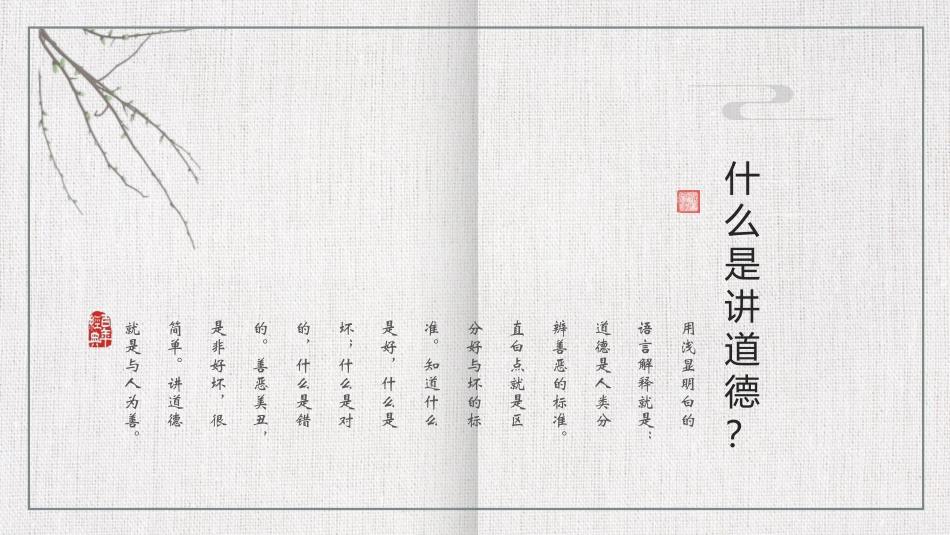 什么是讲道德？
用浅显明白的
语言解释就是：
道德是人类分
辨善恶的标准。
直白点就是区
分好与坏的标
准。知道什么
是好，什么是
坏；什么是对
的，什么是错
的。善恶美丑，
是非好坏，很
简单。讲道德
就是与人为善。
百年
經典